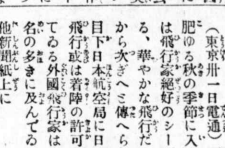 (東京卅一日電通)
肥ゆる秋の季節に入
は飛行家絶好のシー
る、華やかな飛行だ
から次ぎへと傳へら
目下日本航空局に日
飛行或は着陸の許可
てゐる外國飛行家は
名の多きに及んでゐ
他新聞紙上に